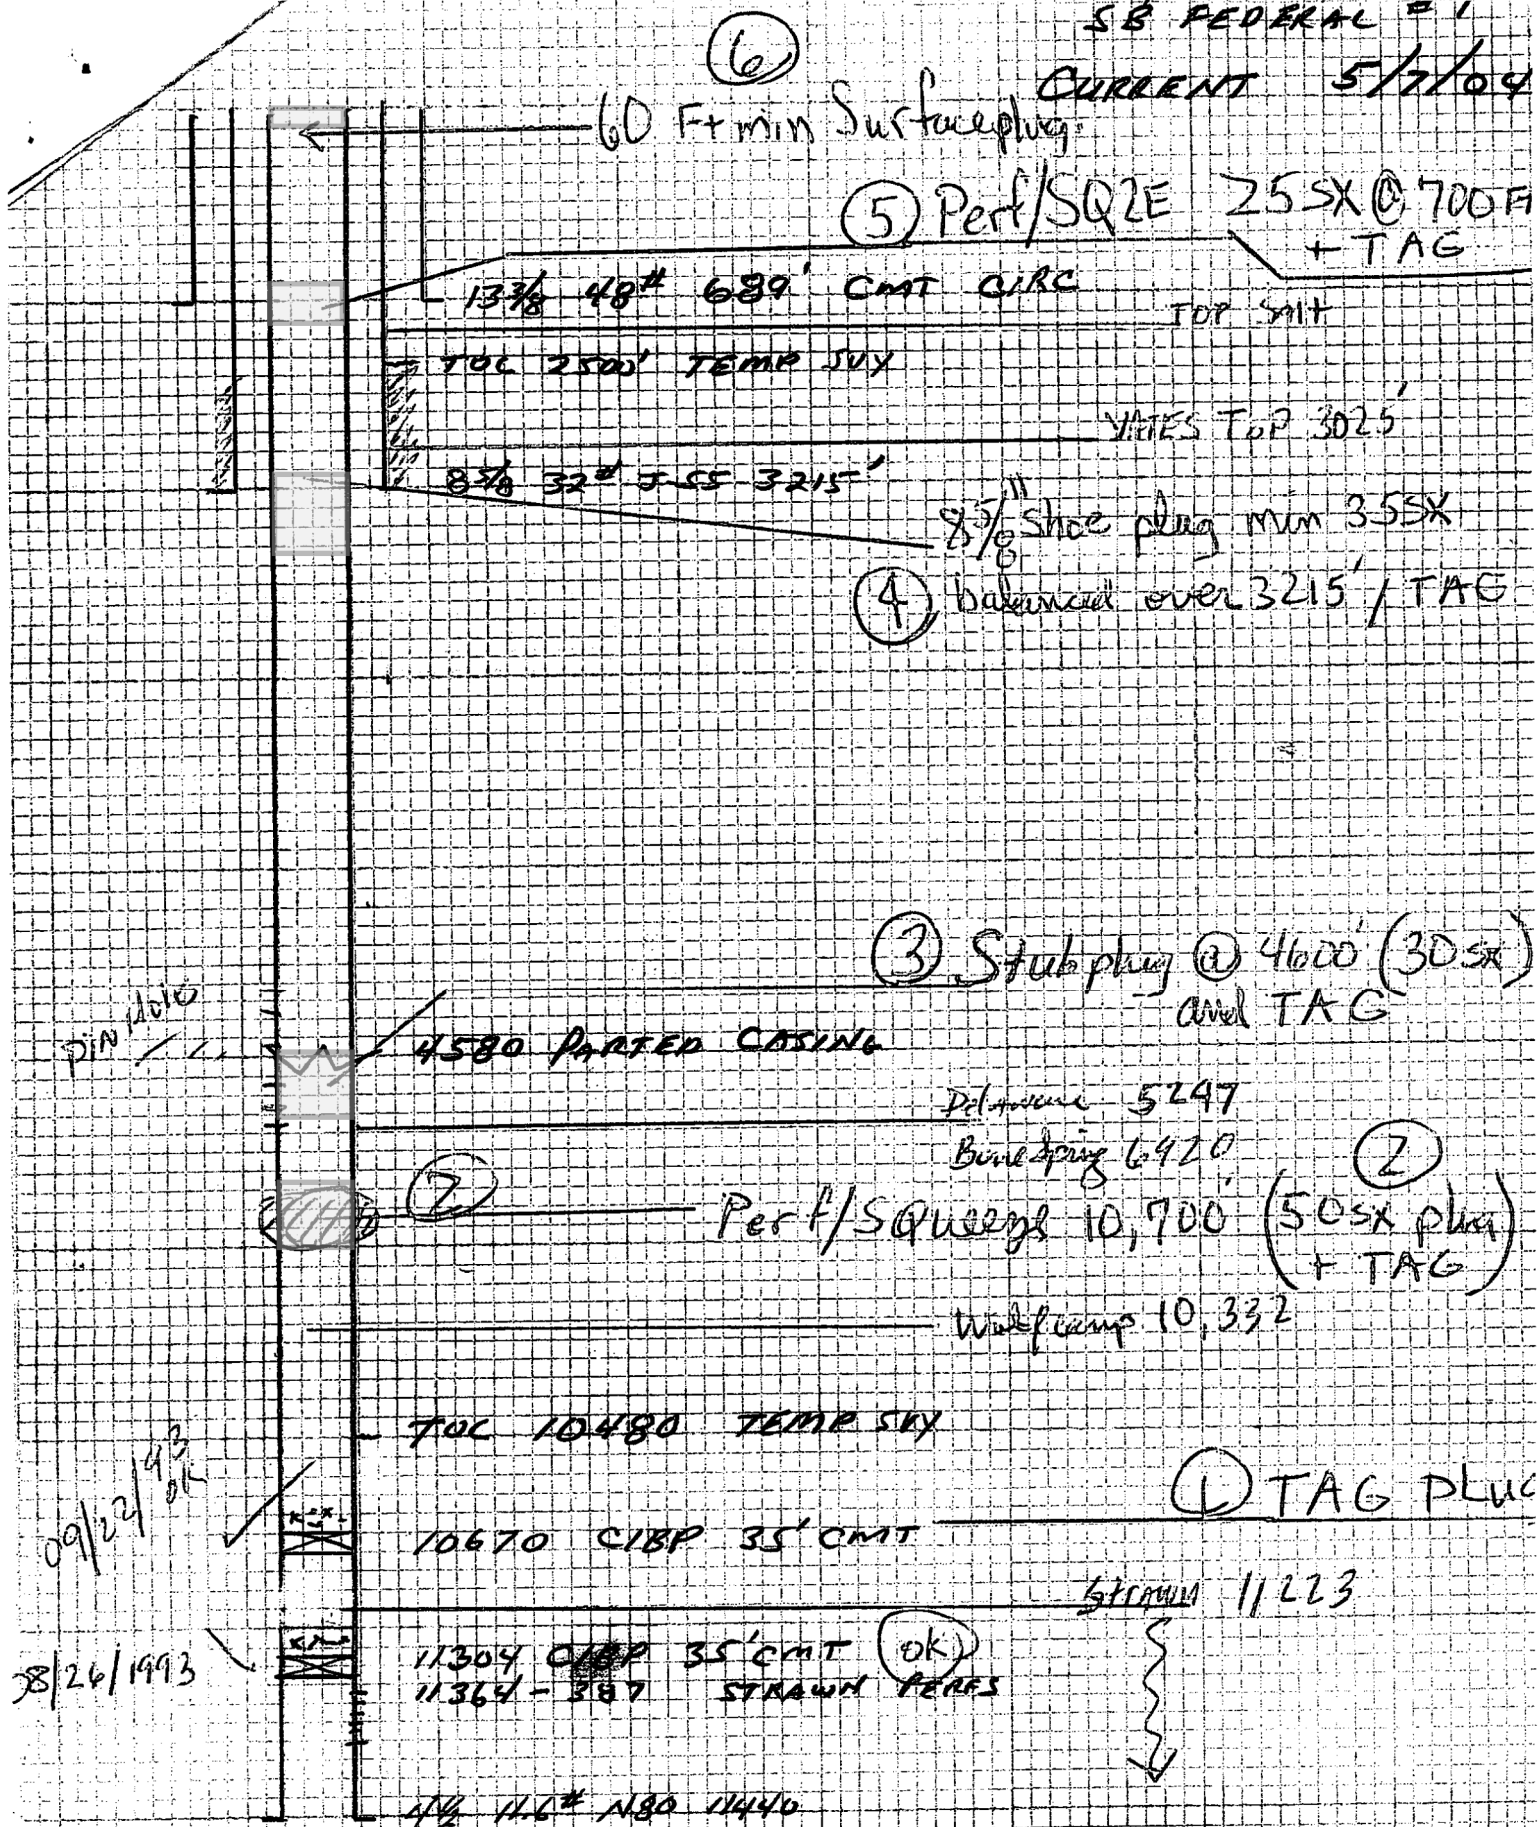 SB FEDERAL #1
⑥
CURRENT 5/7/04
60 Ft min Surface plug
⑤ Perf/SQZE 25 SX @ 700 Ft
+ TAG
13 3/8 48# 689' CMT CIRC
TOP Salt
TOC 2500' TEMP SVY
YATES TOP 3025'
8 5/8 32# J-55 3215'
8 5/8" Shoe plug min 35 SX
④ balanced over 3215' / TAG
③ Stub plug @ 4600' (30 sx)
and TAG
PIN Hole
4580 PARTED CASING
Delaware 5247
Bone Spring 6920
②
②
Perf/SQueeze 10,700' (50 sx plug
+ TAG)
Wolfcamp 10,332
TOC 10480 TEMP SVY
09/22/93
ok
① TAG PLUG
10670 CIBP 35' CMT
Strawn 11223
11304 CIBP 35' CMT (ok)
08/26/1993
11364 - 387 STRAWN PERFS
4 1/2 11.6# N80 11440